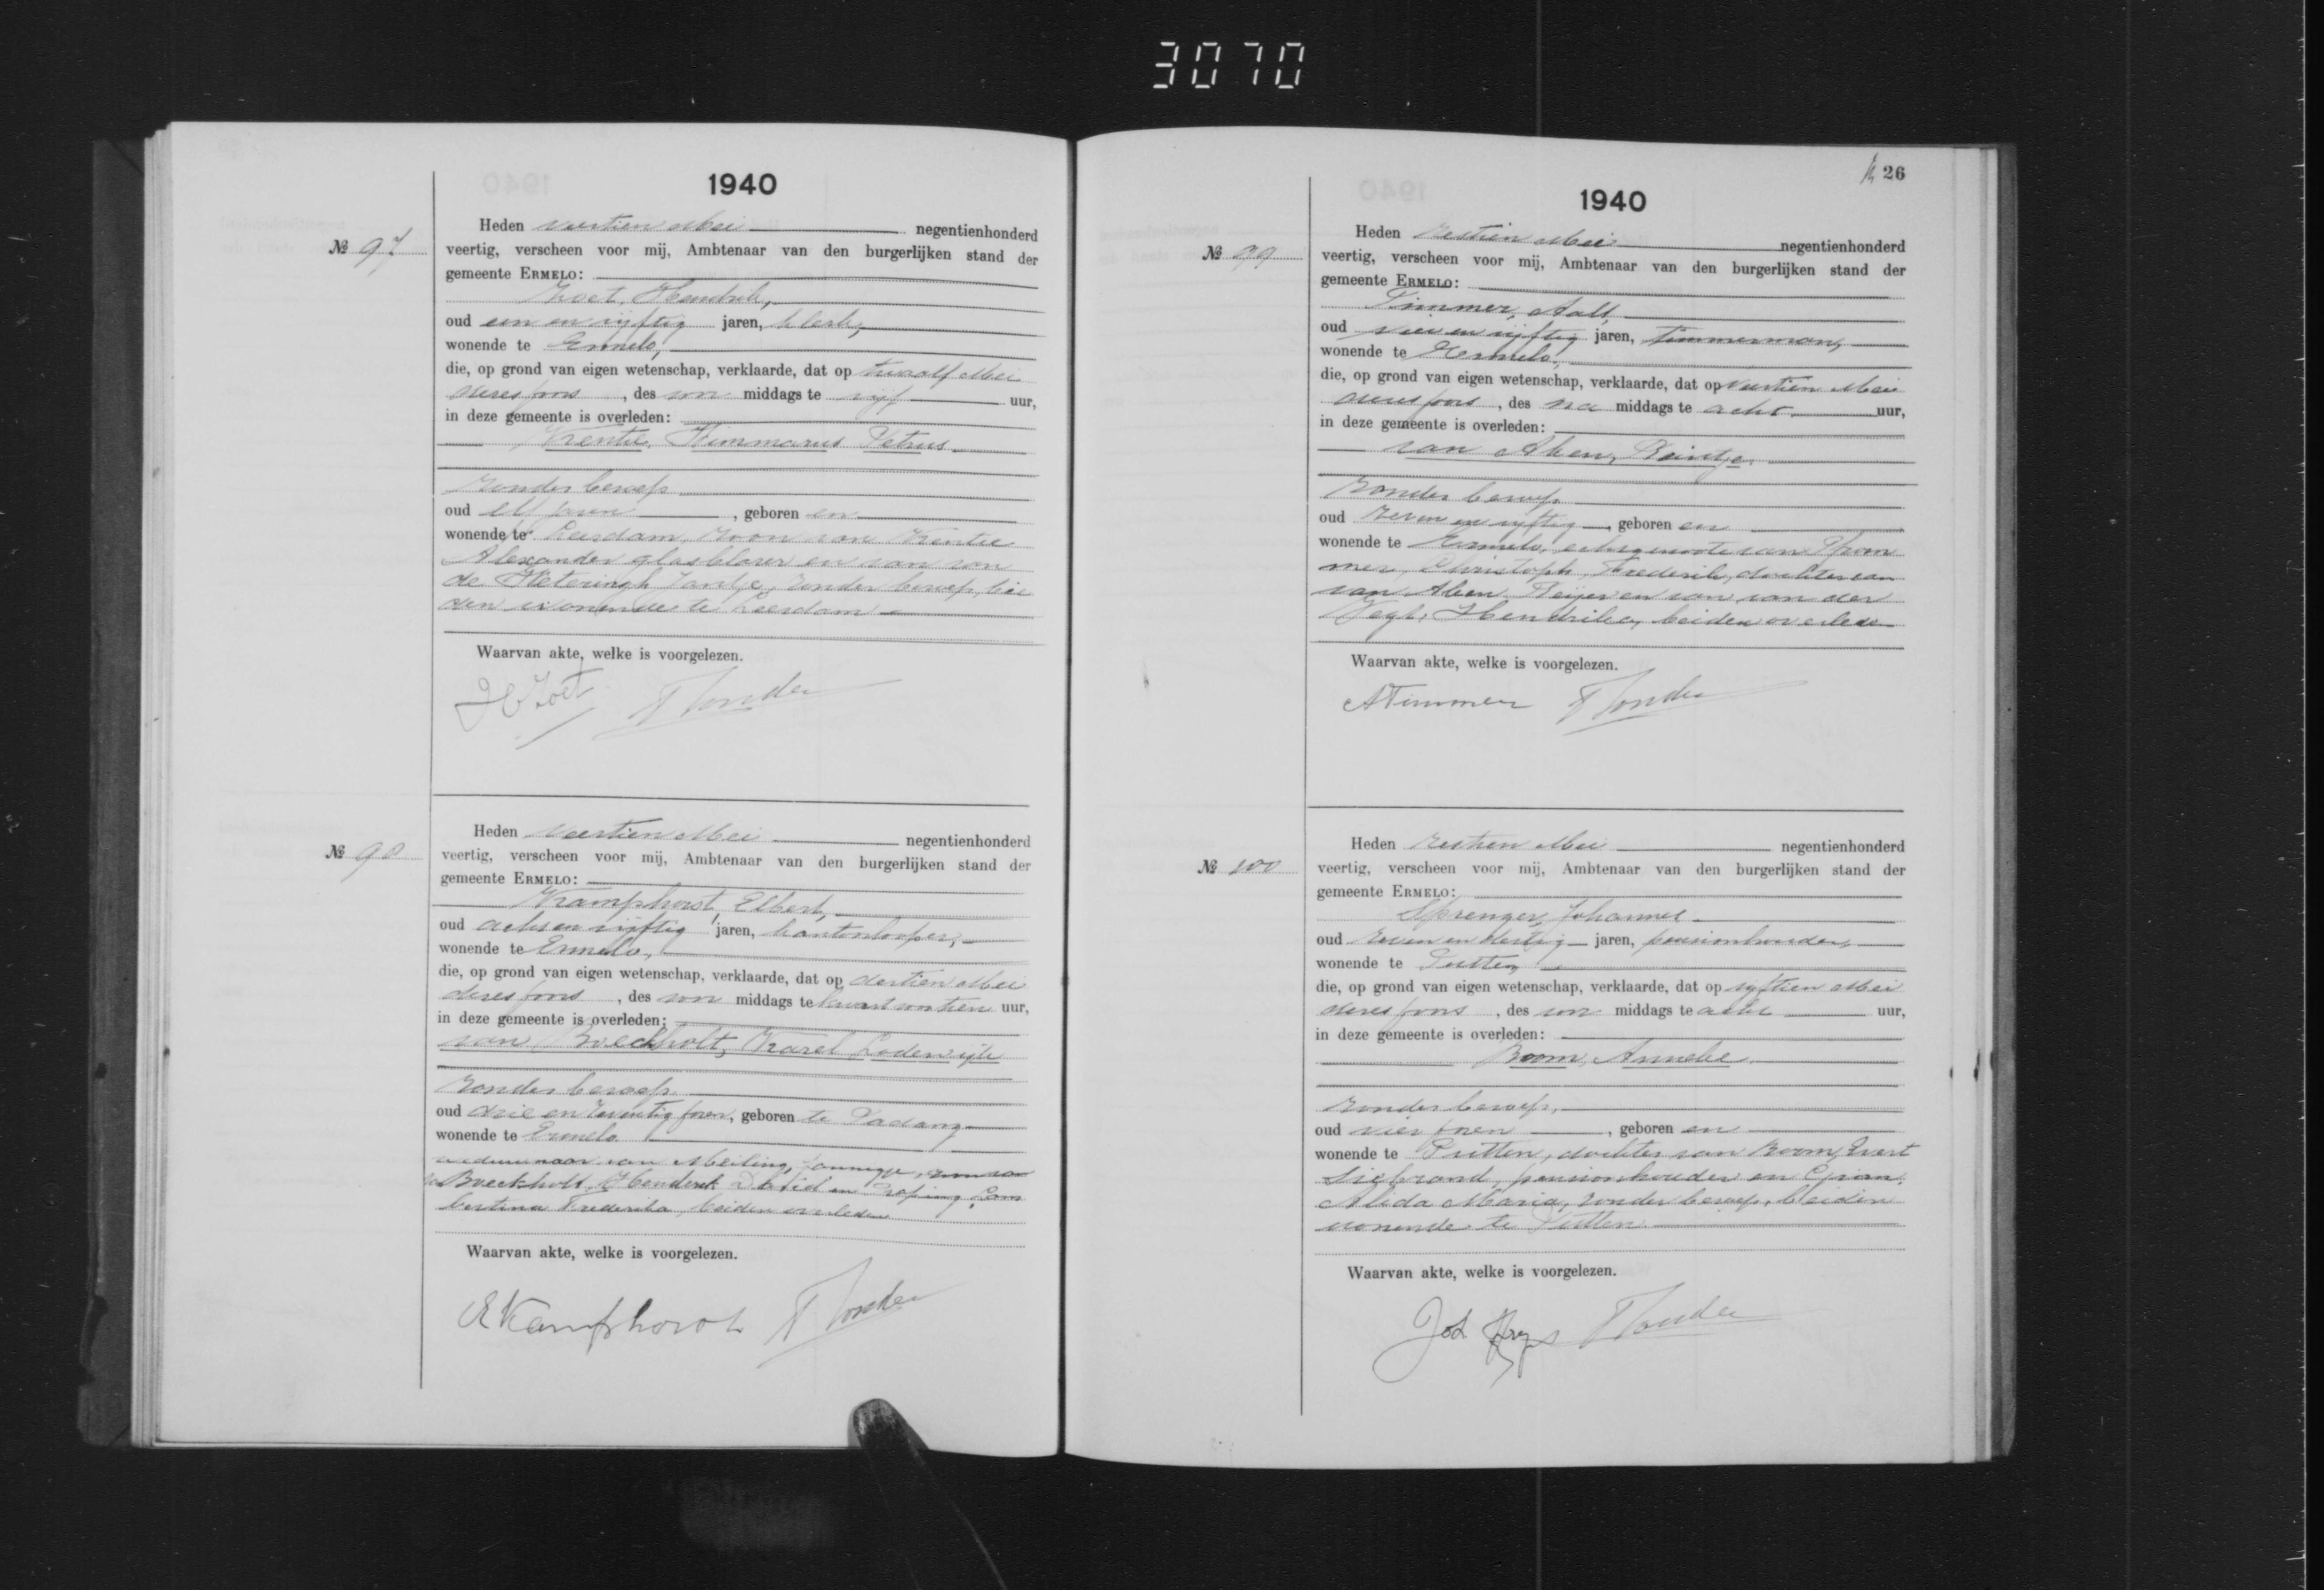 3070
1940
№ 97
Heden veertien Mei negentienhonderd
veertig, verscheen voor mij, Ambtenaar van den burgerlijken stand der
gemeente ERMELO:
Zoet, Hendrik,
oud een en vijftig jaren, klerk,
wonende te Ermelo,
die, op grond van eigen wetenschap, verklaarde, dat op twaalf Mei
dezes jaars, des voor middags te vijf uur,
in deze gemeente is overleden:
Krentie, Himmarus Petrus
zonder beroep
oud elf jaren, geboren en
wonende te Leerdam, zoon van Krentie
Alexander glasblazer en van van
de Heteringh Jantje, zonder beroep, bei
den wonende te Leerdam
Waarvan akte, welke is voorgelezen.
H Zoet
№ 98
Heden veertien Mei negentienhonderd
veertig, verscheen voor mij, Ambtenaar van den burgerlijken stand der
gemeente ERMELO:
Kamphorst, Elbert,
oud acht en vijftig jaren, kantonlooper,
wonende te Ermelo,
die, op grond van eigen wetenschap, verklaarde, dat op dertien Mei
dezes jaars, des voor middags te kwart voor tien uur,
in deze gemeente is overleden:
van Boeckholt, Karel Lodewijk
zonder beroep
oud drie en zeventig jaren, geboren te Padang
wonende te Ermelo
weduwnaar van Meiling, zoon van
van Boeckholt, Henderik David en Lam
bertina Frederika, beiden overleden
Waarvan akte, welke is voorgelezen.
E Kamphorst
26
1940
№ 99
Heden zestien Mei negentienhonderd
veertig, verscheen voor mij, Ambtenaar van den burgerlijken stand der
gemeente ERMELO:
Timmer, Aalt,
oud vier en vijftig jaren, timmerman,
wonende te Ermelo,
die, op grond van eigen wetenschap, verklaarde, dat op veertien Mei
dezes jaars, des na middags te acht uur,
in deze gemeente is overleden:
van Aken, Reintje.
zonder beroep
oud zeven en vijftig, geboren en
wonende te Ermelo, echtgenoote van
Christoph, Frederik, dochter van
van Aken, Reijer en van van der
Vegt, Hendrika, beiden overleden
Waarvan akte, welke is voorgelezen.
A Timmer
№ 100
Heden zestien Mei negentienhonderd
veertig, verscheen voor mij, Ambtenaar van den burgerlijken stand der
gemeente ERMELO:
Sprenger, Johannes
oud zeven en dertig jaren, pensionhouder,
wonende te Putten
die, op grond van eigen wetenschap, verklaarde, dat op vijftien Mei
dezes jaars, des voor middags te acht uur,
in deze gemeente is overleden:
Boom, Anneke
zonder beroep,
oud vier jaren, geboren en
wonende te Putten, dochter van Boom, Evert
Siebrand, pensionhouder en
Alida Maria, zonder beroep, beiden
wonende te Putten
Waarvan akte, welke is voorgelezen.